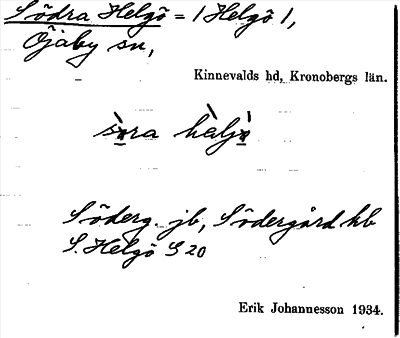 Södra Helgö = / Helgö /,
Öjaby sn,
Kinnevalds hd, Kronobergs län.
Söderg. jb, Södergård kb
S. Helgö G 20
Erik Johannesson 1934.